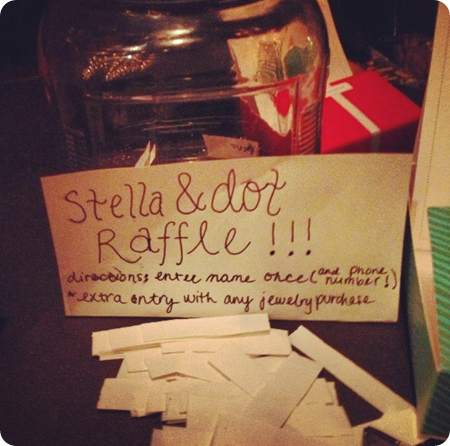 Stella & dot
Raffle !!!
directions: enter name once (and phone number!)
*extra entry with any jewelry purchase